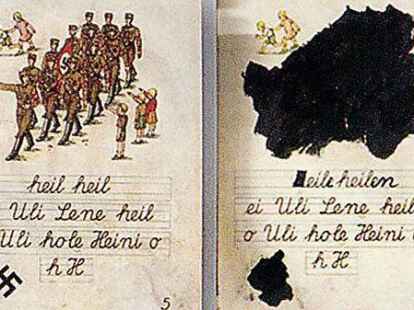 heil heil
Uli Lene heil
Uli hole Heini o
h H
5
heile heilen
ei Uli Lene heil
o Uli hole Heini
h H